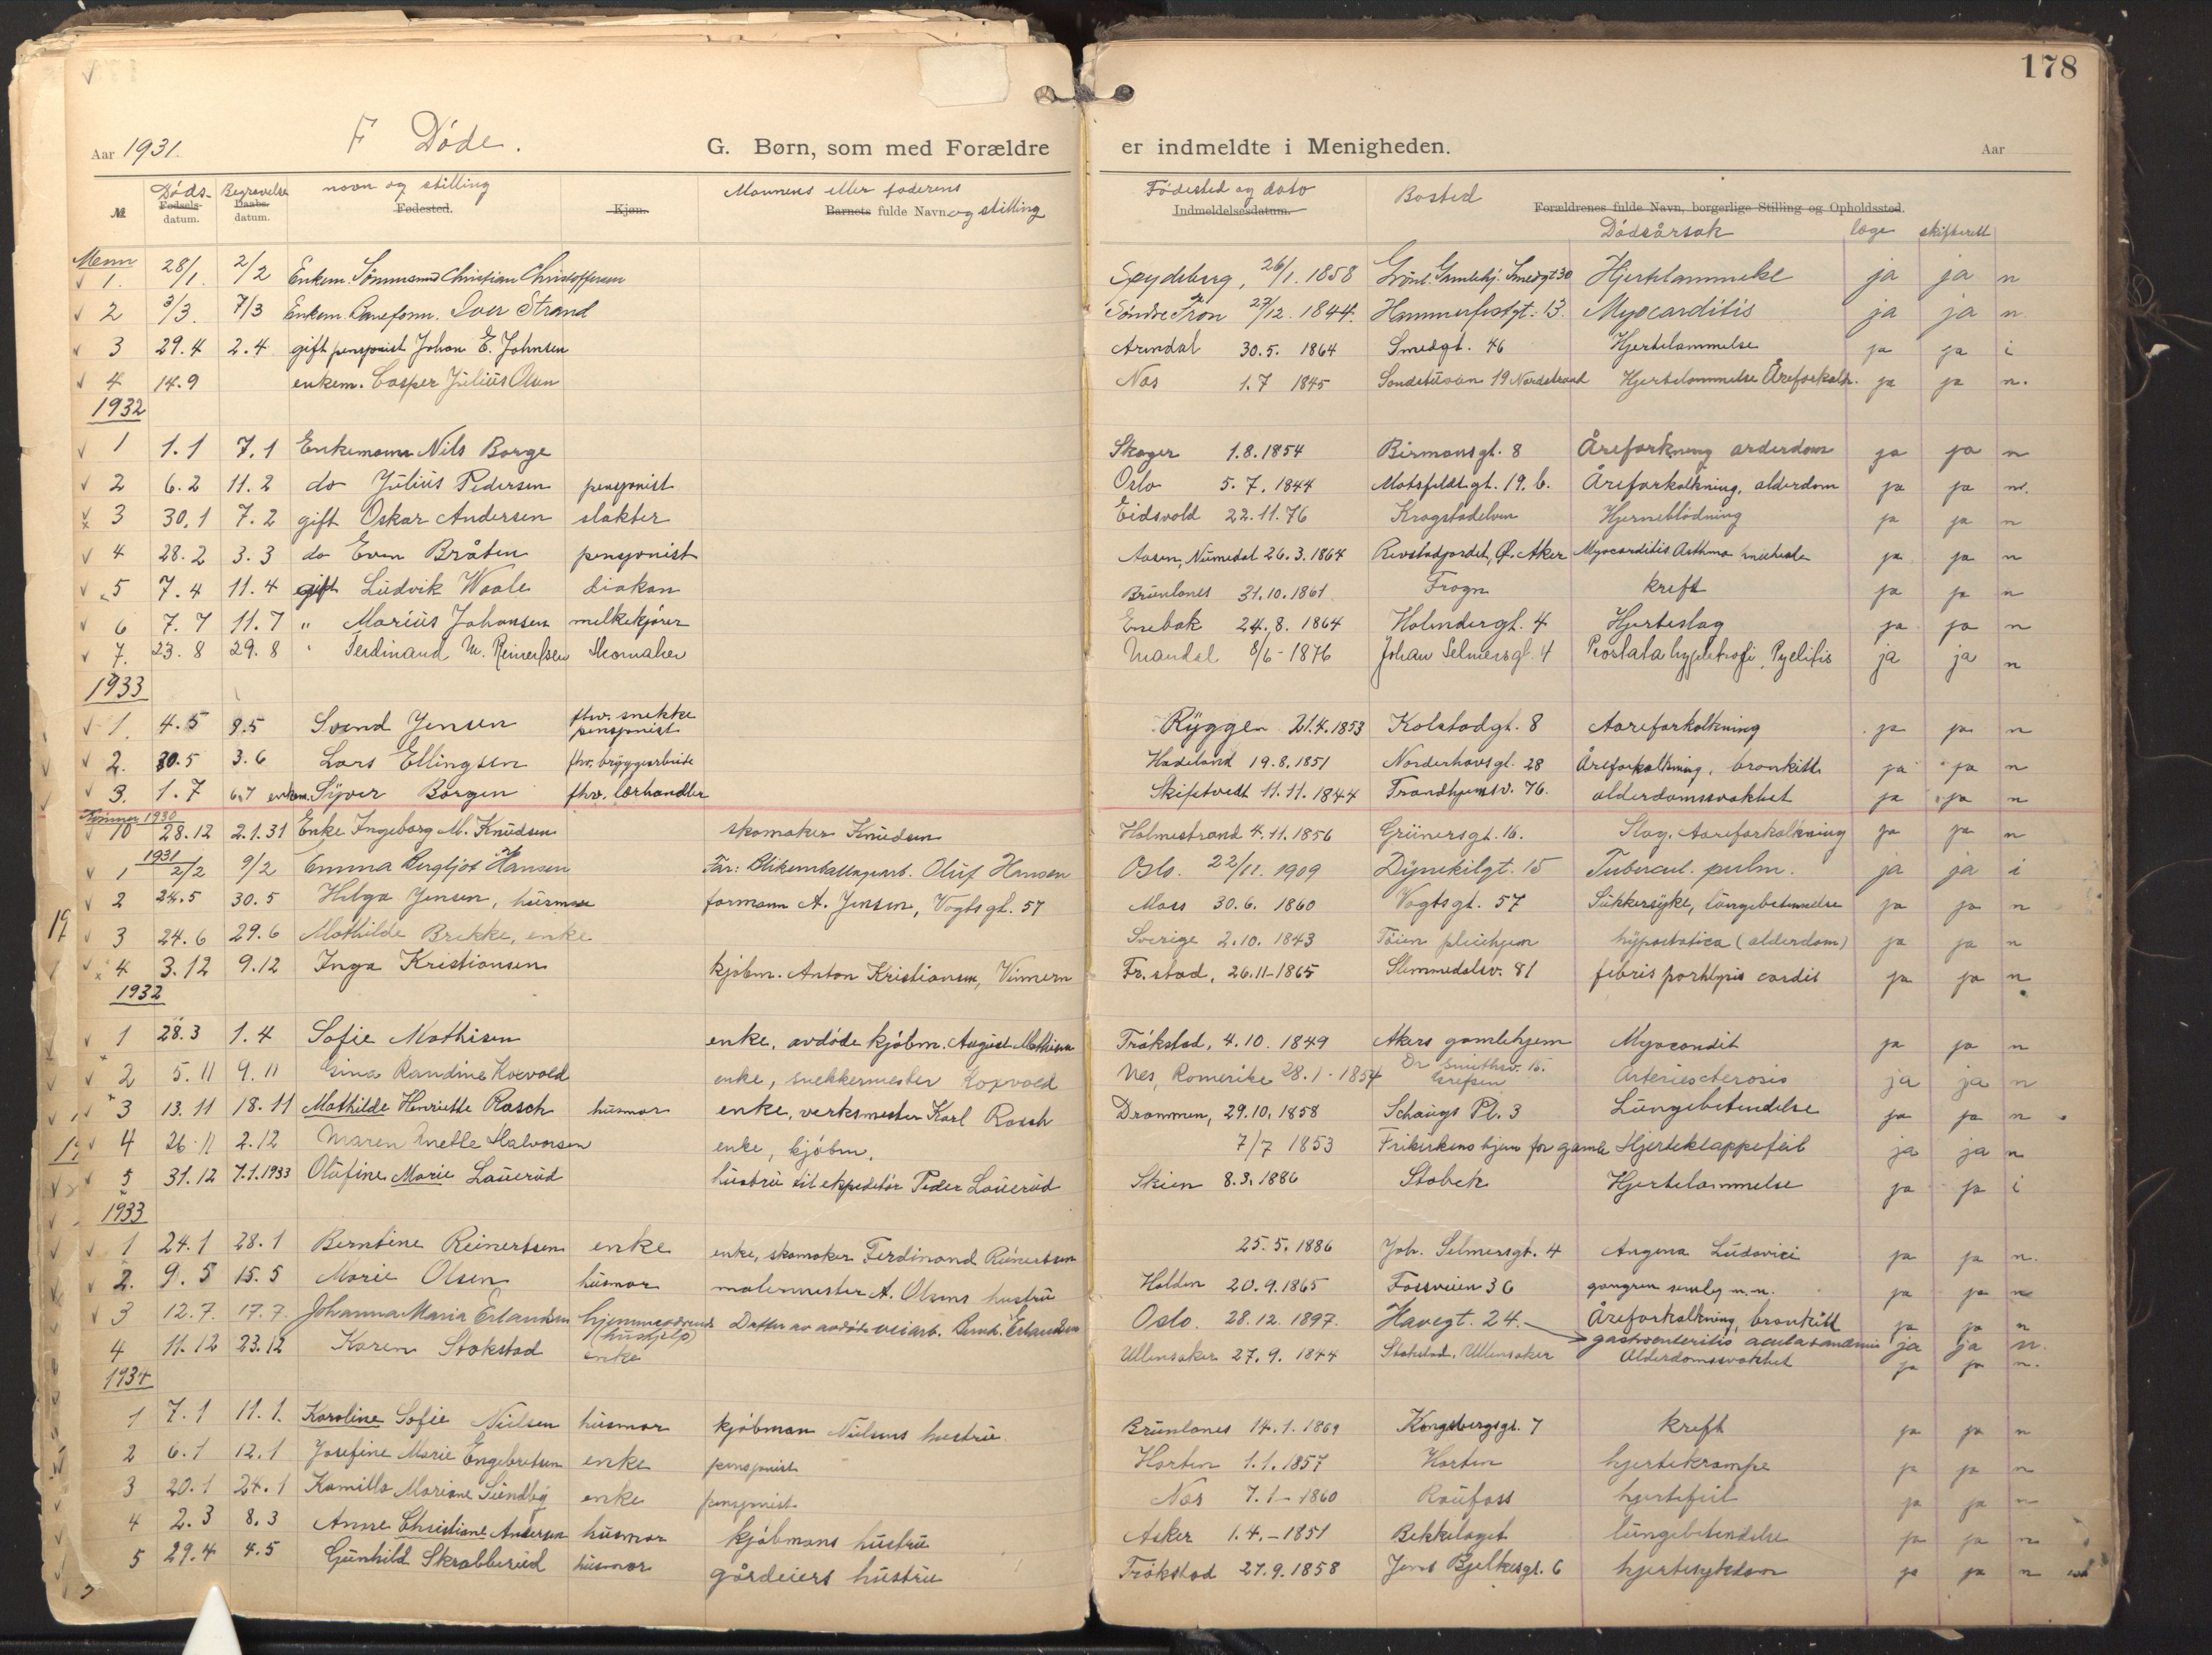 178
Aar 1931. F Döde. G. Børn, som med Forældre er indmeldte i Menigheden. Aar
№ Döds- Fødsels- datum. Begravelse Daabs- datum. navn og stilling Fødested. Kjøn. Mannens eller faderens Barnets fulde Navn og stilling Födested og dato Indmeldelsesdatum. Bosted Forældrenes fulde Navn, borgerlige Stilling og Opholdssted. Dödsårsak læge skifterett
Menn
1. 28/1. 2/2 Enkem. Sömmand Christian Christoffersen Spydeberg, 26/1. 1858 Grönl. Gamlehj. Smedgt 30 Hjertelammelse ja ja n
2 3/3. 7/3 Enkem. Baneform. Iver Strand Söndre Fron 27/12. 1844. Hammerfestgt. 13. Myocarditis ja ja n
3 29.4 2.4 gift pensjonist Johan E. Johnsen Arendal 30.5. 1864 Smedgt. 46 Hjertelammelse ja ja i
4 14.9 enkem. Casper Julius Olsen Nes 1.7 1845 19 Nordstrand Hjertelammelse Åreforkalk. ja ja n.
1932
1 1.1 7.1 Enkemann Nils Borge Skoger 1.8.1854 Birmansgt. 8 Åreforkning arderdom ja ja n
2 6.2 11.2 do Julius Pedersen pensjonist Oslo 5.7.1844 Motsfeldtgt. 19. b. Åreforkalkning, alderdom ja ja n.
3 30.1 7.2 gift Oskar Andersen slakter Eidsvold 22.11.76 Krogstadelven Hjerneblödning ja ja n
4 28.2 3.3 do Even Bråten pensjonist Aasen, Numedal 26.3.1864 Revstadjordet, Ö. Aker Myocarditis Asthma ja ja n
5 7.4 11.4 gift Ludvik Waale diakon Brunlanes 31.10.1861 Frogn kreft ja ja n
6 7.7 11.7 " Marius Johansen melkekjörer Enebak 24.8.1864 Holmdergt. 4 Hjerteslag ja ja n
7. 23.8 29.8 " Ferdinand M. Reinertsen Skomaker Mandal 8/6-1876 Johan Selmersgt. 4 Prostata hypertrofi, Pyelitis ja ja n
1933
1. 4.5 9.5 Svend Jensen fhv. snekke pensjonist Rygge 21.4.1853 Kolstadgt. 8 Aareforkalkning ja ja n
2. 30.5 3.6 Lars Ellingsen fhv. bryggearbeide Hadeland 19.8.1851 Norderhovsgt. 28 Åreforkalkning, bronkitt ja ja n
3. 1.7 6.7 enkem. Syver Borgen fhv. lærhandler Skiptvedt 11.11.1844 Trondhjemsv. 76. alderdomssvakhet ja ja n
Kvinner 1930
10 28.12 2.1.31 Enke Ingeborg M. Knudsen skomaker Knudsen Holmestrand 4.11.1856 Grünersgt. 16. Slag. Aareforkalkning ja ja n
1931
1 2/2 9/2 Emma Bergljot Hansen Far: Blikemballagearb. Oluf Hansen Oslo. 22/11. 1909 Dynekilgt. 15 Tubercul. pulm. ja ja i
2 24.5 30.5 Helga Jensen, husmor formann A. Jensen, Vogtsgt. 57 Moss 30.6. 1860 Vogtsgt. 57 Sukkersyke, lungebetennelse ja ja n
3 24.6 29.6 Mathilde Brekke, enke Sverige 2.10. 1843 Töien pleiehjem hypostatica (alderdom) ja ja n
4 3.12 9.12 Inga Kristiansen kjöbm. Anton Kristiansen, Vinnern Fr.stad, 26.11-1865 Slemmedalsv. 81 febris cordis ja ja n
1932
1 28.3 1.4 Sofie Mathisen enke, avdöde kjöbm. August Mathisen Tråkstad, 4.10. 1849 Akers gamlehjem Myocardit ja ja n
2 5.11 9.11 Gina Randine Koxvold enke, snekkermester Koxvold Nes, Romerike 28.1.1854 Dr Smithsv. 15. Grefsen Arteriesclerosis ja ja n
3 13.11 18.11 Mathilde Henriette Rasch husmor enke, verksmester Karl Rasch Drammen, 29.10.1858 Schaugs Pl. 3 Lungebetendelse ja ja n
4 26.11 2.12 Maren Anette Halvorsen enke, kjöbm. 7/7 1853 Frikirkens hjem for gamle Hjerteklappefeil ja ja n
5 31.12 7.1.1933 Olufine Marie Lauerud hustru til ekspeditör Peder Lauerud Skien 8.3.1886 Stabek Hjertelammelse ja ja i
1933
1 24.1 28.1 Berntine Reinertsen enke enke, skomaker Ferdinand Reinertsen 25.5.1886 Joh. Selmersgt. 4 Angina Ludovici ja ja n.
2. 9.5 15.5 Marie Olsen husmor malermester A. Olsens hustru Halden 20.9.1865 Fossveien 36 gangren m.m. ja ja n
3 12.7. 17.7. Johanna Maria Erlandsen hjemmeværende (hushjelp) Datter av avdöde veiarb. Bernh. Erlandsen Oslo. 28.12.1897. Havegt. 24. Åreforkalkning, bronkitt ja ja n
gastroenteritis acuta ja ja n.
4 11.12 23.12 Karen Stokstad enke Ullensaker 27.9.1844 Stokstad, Ullensaker Alderdomssvakhet ja ja n.
1934
1 7.1 11.1. Karoline Sofie Nielsen husmor kjöbman Nielsens hustru Brunlanes 14.1.1869 Kongsbergsgt. 7 kreft ja ja n
2 6.1 12.1 Josefine Marie Engebretsen enke pensjonist Horten 1.1.1857 Horten hjertekrampe ja ja n
3 20.1 24.1 Kamilla Mariane Sundby enke pensjonist Nes 7.1-1860 Raufoss hjertefeil ja ja n
4 2.3 8.3 Anne Christiane Andersen husmor kjöbmans hustru Asker 1.4.-1851 Bekkelaget lungebetendelse ja ja n
5 29.4 4.5 Gunhild Skrabberud husmor gårdeiers hustru Tråkstad 27.9.1858 Jens Bjelkesgt. 6 hjertesykdom ja ja n